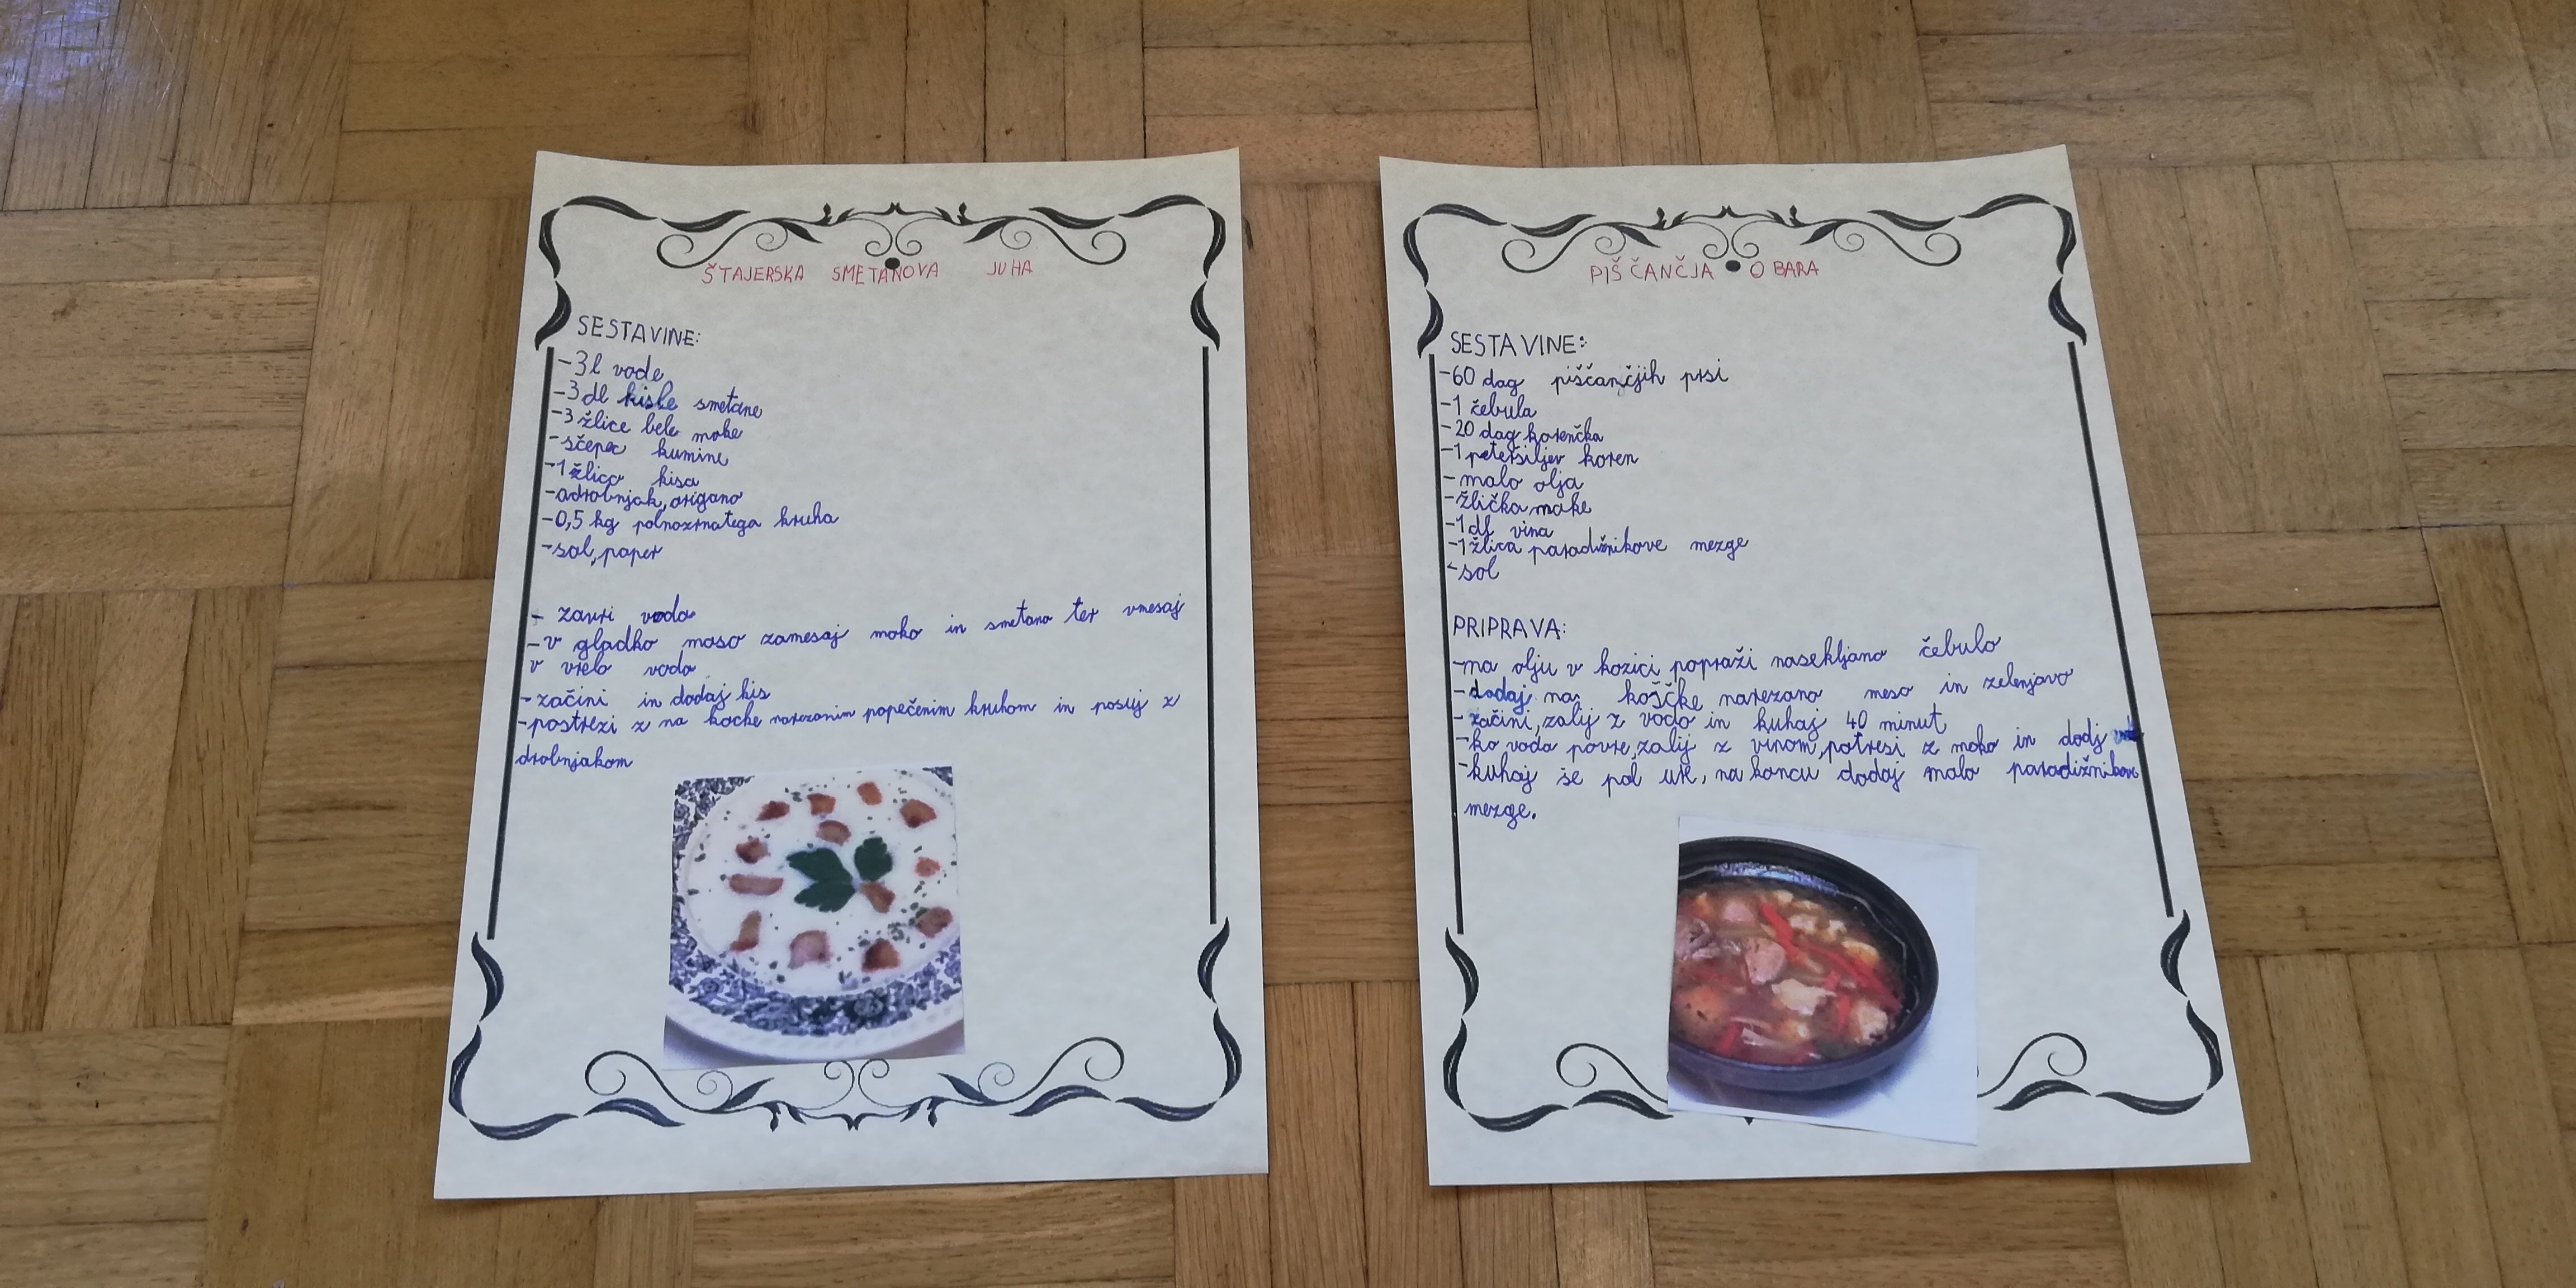 ŠTAJERSKA SMETANOVA JUHA
SESTAVINE:
-3l vode
-3 dl kisle smetane
-3 žlice bele moke
-sčepec kumine
-1 žlica kisa
-adrobnjak, origano
-0,5 kg polnozrnatega kruha
-sol, poper
- zavri vodo
-v gladko maso zamesaj moko in smetano ter vmesaj
v vrelo vodo
-začini in dodaj kis
-postrezi z na kocke narezanim popečenim kruhom in posuj z
drobnjakom
PIŠČANČJA OBARA
SESTAVINE:
-60 dag piščančjih prsi
-1 čebula
-20 dag korenčka
-1 peteršiljev koren
-malo olja
-žlička moke
-1 dl vina
-1 žlica paradižnikove mezge
-sol
PRIPRAVA:
-na olju v kozici popraži nasekljano čebulo
-dodaj na koščke narezano meso in zelenjavo
-začini, zalij z vodo in kuhaj 40 minut
-ko voda povre, zalij z vinom, potresi z moko in dodj
-kuhaj še pol ure, na koncu dodaj malo paradižnikove
mezge.